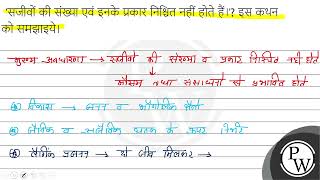 'सजीवों की संख्या एवं इनके प्रकार निश्चित नहीं होते हैं।'? इस कथन
को समझाइये।
मुख्य अवधारणा → सजीवों की संख्या व प्रकार निश्चित नहीं होते
मौसम तथा संसाधनों से प्रभावित होते
विकास → जनन व भौगोलिक
जैविक व अजैविक घटक के ऊपर निर्भर
लैंगिक प्रजनन → दो जीव मिलकर →
PW